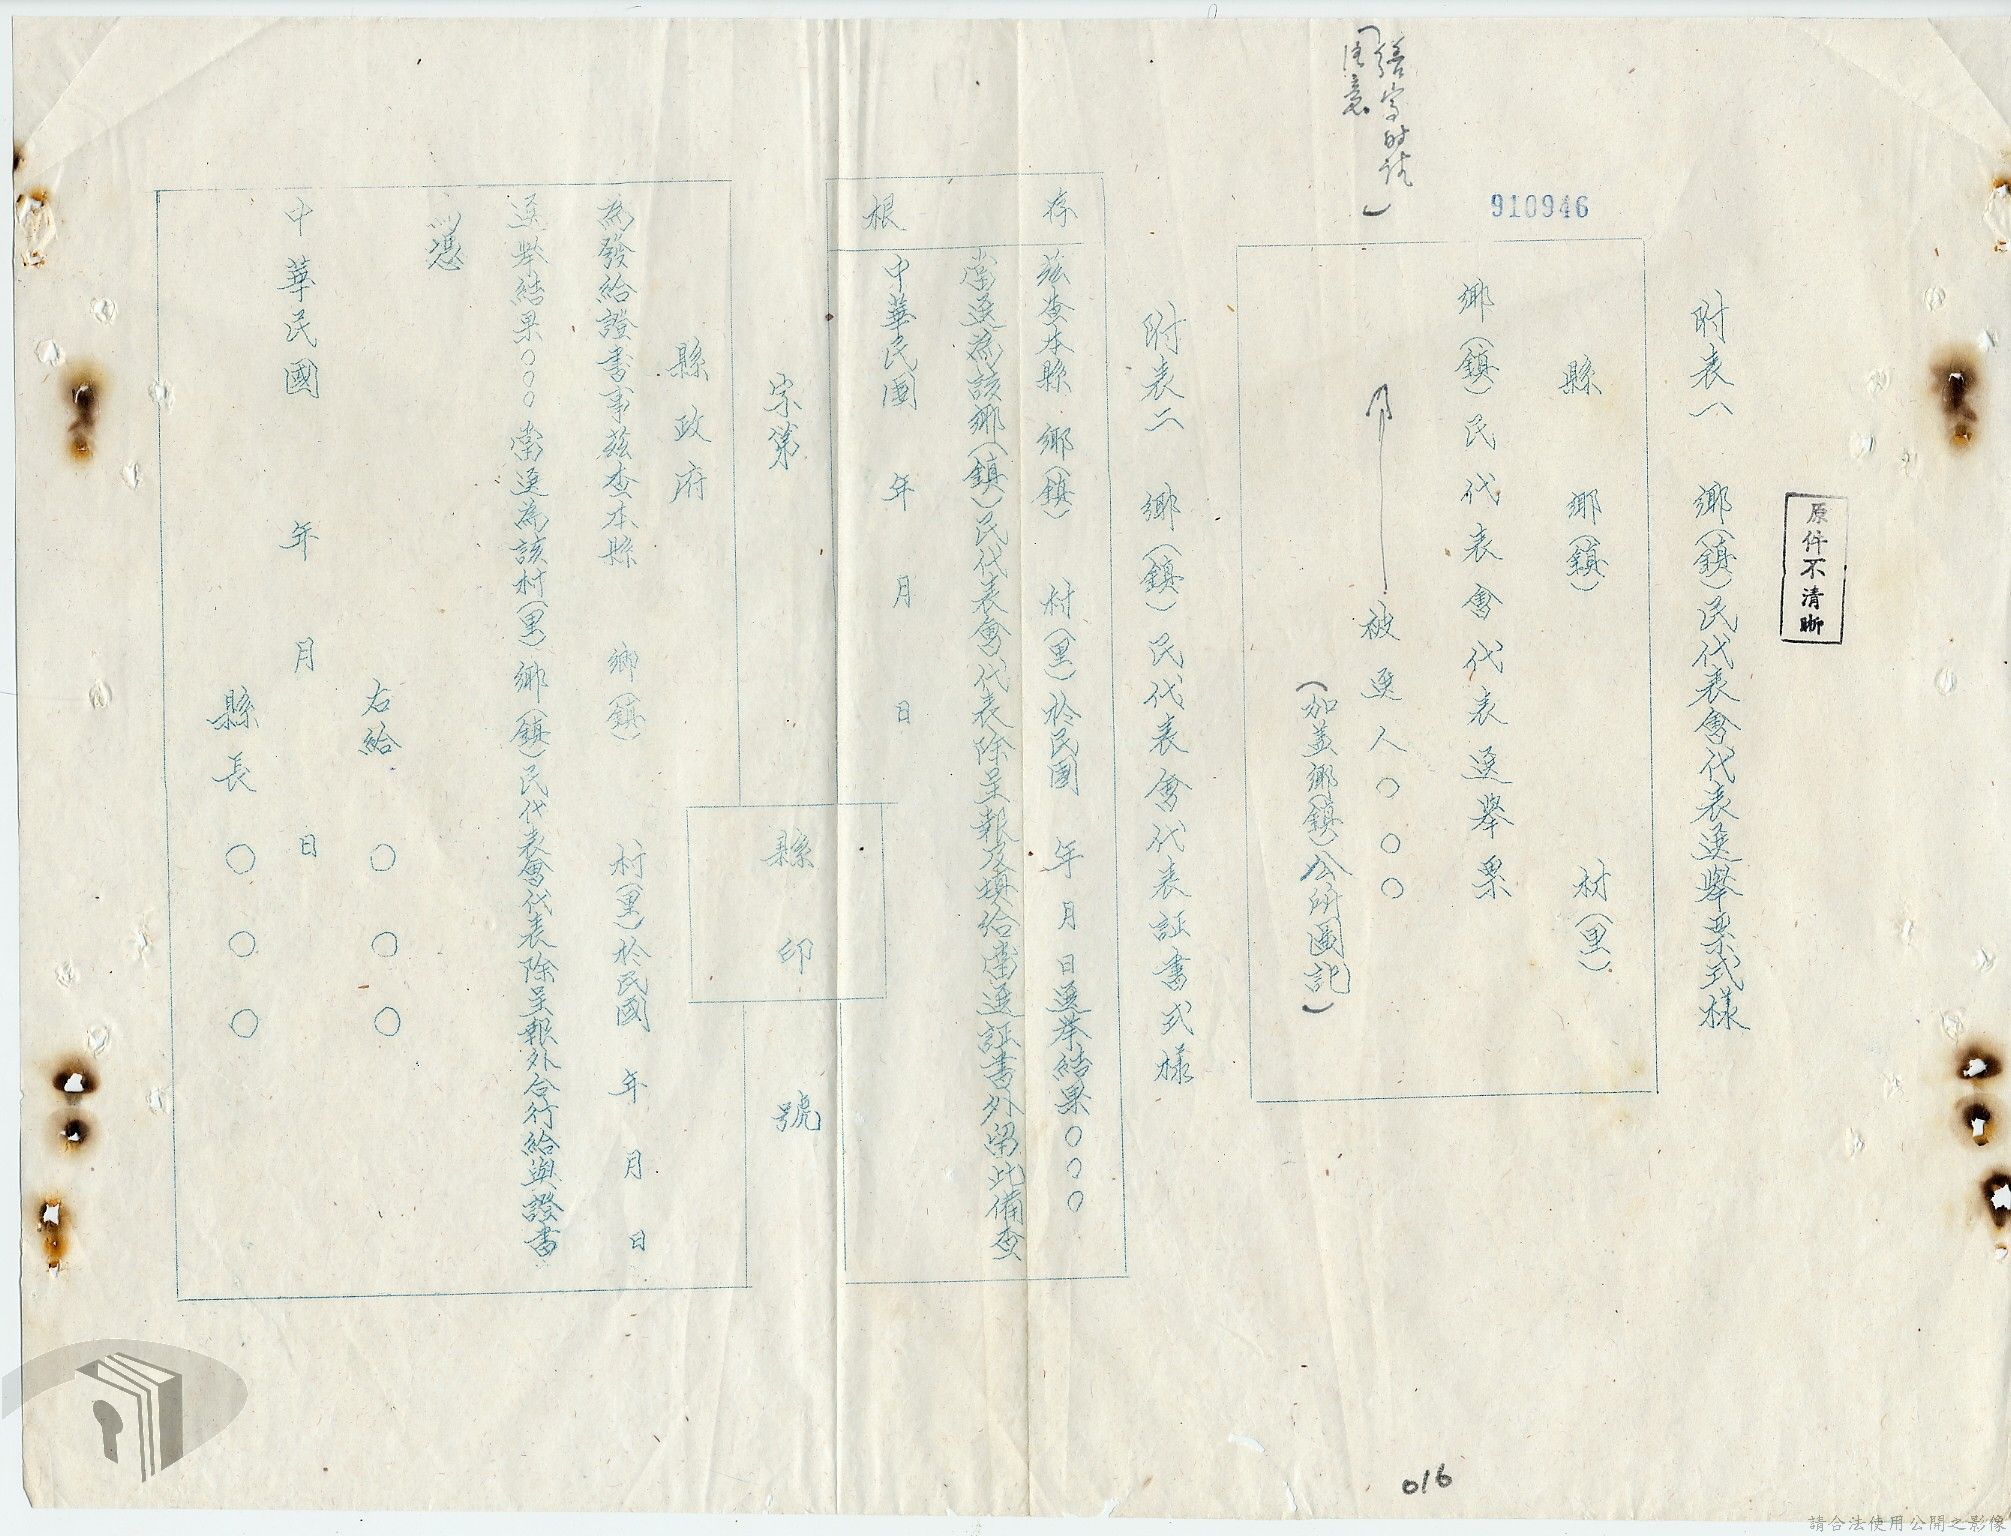 原件不清晰
附表一　鄉(鎮)民代表會代表選舉票式樣
910946
縣　鄉(鎮)　村(里)
鄉(鎮)民代表會代表選舉票
被選人○○○
(加蓋鄉(鎮)公所圖記)
(繕寫時請
注意)
附表二　鄉(鎮)民代表會代表証書式樣
存根
茲查本縣　鄉(鎮)　村(里)於民國　年　月　日選举結果○○○
當選為該鄉(鎮)民代表會代表除呈報及填給當選証書外留此備查
中華民國　年　月　日
字第　號
縣印
縣政府
為發給證書事茲查本縣　鄉(鎮)　村(里)於民國　年　月　日
選举結果○○○當選為該村(里)鄉(鎮)民代表會代表除呈報外合行給與證書
以憑
右給　○○○
中華民國　年　月　日
縣長○○○
016
請合法使用公開之影像